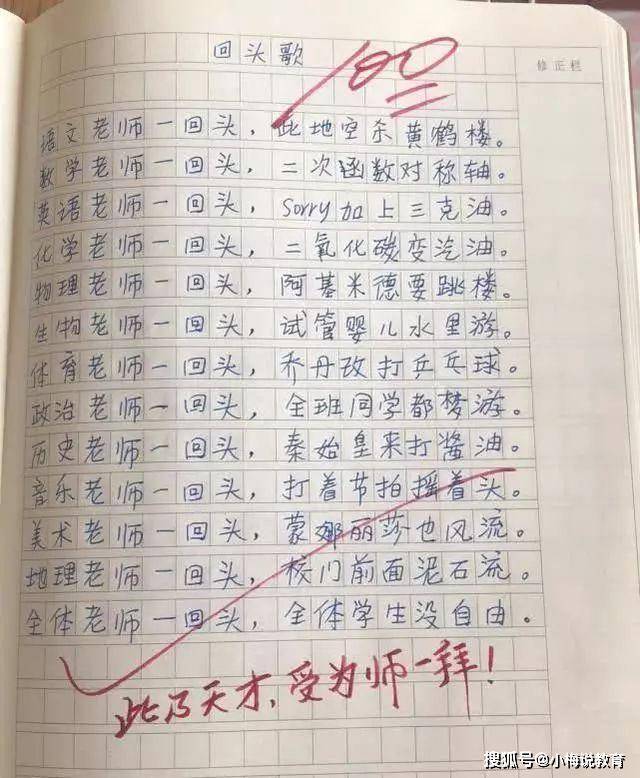 回头歌
100
修正栏
语文老师一回头，此地空杀黄鹤楼。
数学老师一回头，二次函数对称轴。
英语老师一回头，sorry加上三克油。
化学老师一回头，二氧化碳变汽油。
物理老师一回头，阿基米德要跳楼。
生物老师一回头，试管婴儿水里游。
体育老师一回头，乔丹改打乒乓球。
政治老师一回头，全班同学都梦游。
历史老师一回头，秦始皇来打酱油。
音乐老师一回头，打着节拍摇着头。
美术老师一回头，蒙娜丽莎也风流。
地理老师一回头，校门前面泥石流。
全体老师一回头，全体学生没自由。
此乃天才，受为师一拜！
搜狐号@小梅说教育